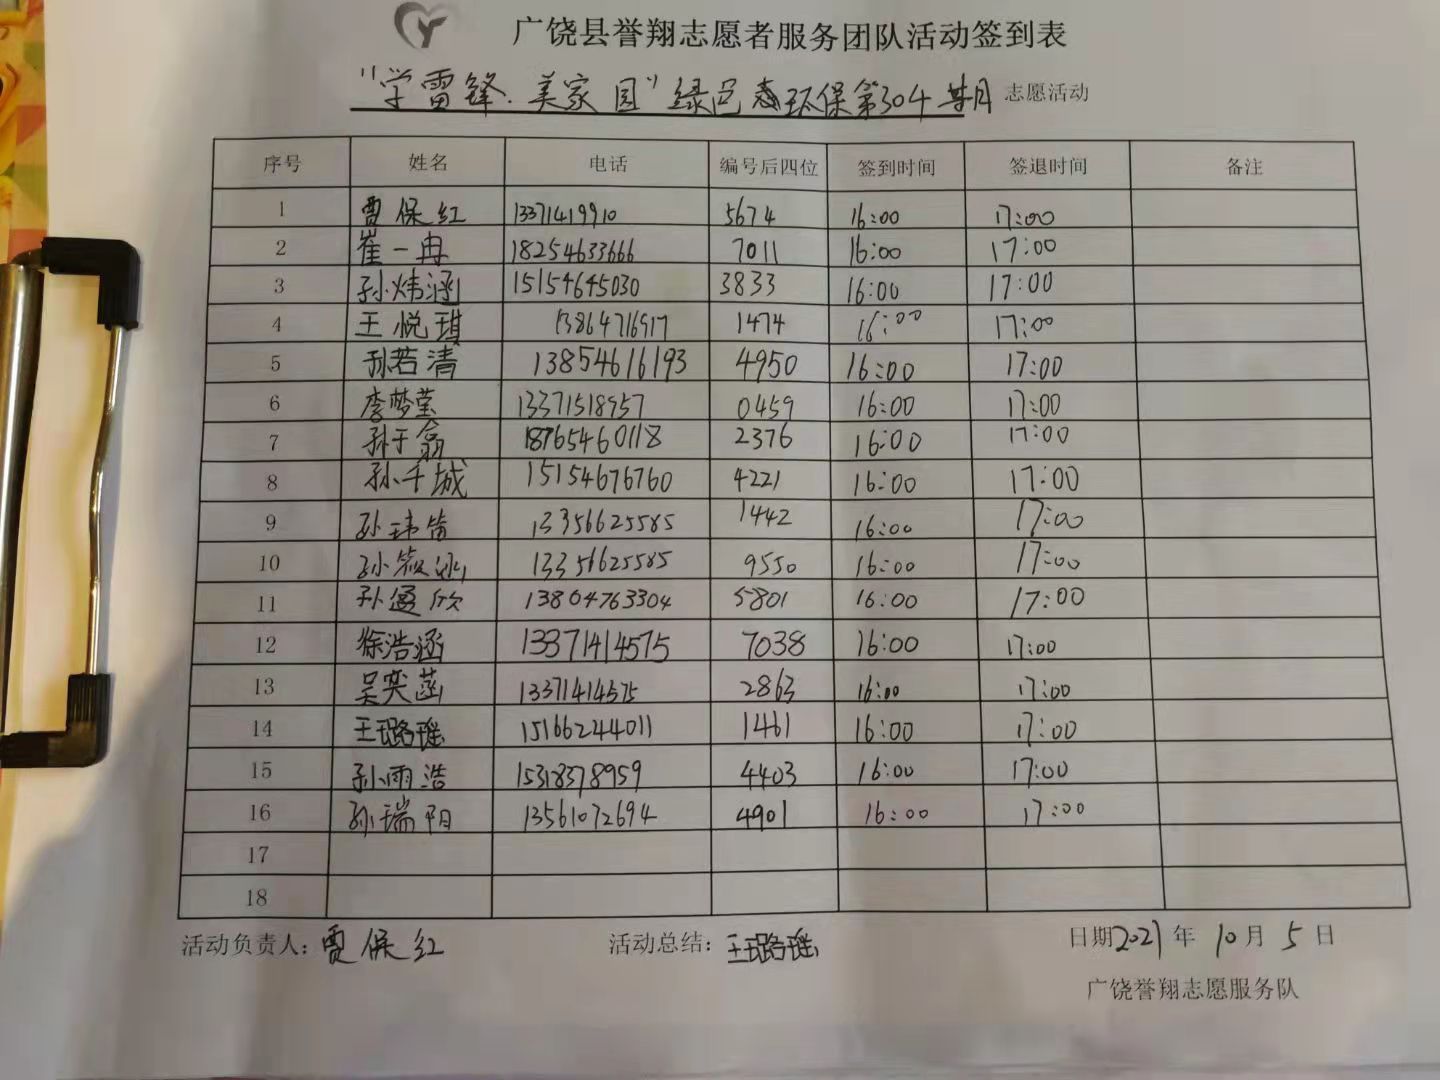 广饶县誉翔志愿者服务团队活动签到表
"学雷锋.美家园"绿色环保第304期 志愿活动
序号 姓名 电话 编号后四位 签到时间 签退时间 备注
1 贾保红 13371419910 5674 16:00 17:00
2 崔一冉 18254633666 7011 16:00 17:00
3 孙炜涵 15154645030 3833 16:00 17:00
4 王悦琪 13864716917 1474 16:00 17:00
5 孙若清 13854616193 4950 16:00 17:00
6 李梦莹 13371518957 0459 16:00 17:00
7 孙于翕 18765460118 2376 16:00 17:00
8 孙千城 15154676760 4221 16:00 17:00
9 孙玮 13356625585 1442 16:00 17:00
10 孙筱 13356625585 9550 16:00 17:00
11 孙 欣 13804763304 5801 16:00 17:00
12 徐浩涵 13371414575 7038 16:00 17:00
13 吴奕菡 13371414575 2863 16:00 17:00
14 王璐瑶 15166244011 1461 16:00 17:00
15 孙雨浩 15318378959 4403 16:00 17:00
16 孙瑞阳 13561072694 4901 16:00 17:00
17
18
活动负责人：贾保红 活动总结：王璐瑶 日期2021年10月5日
广饶誉翔志愿服务队